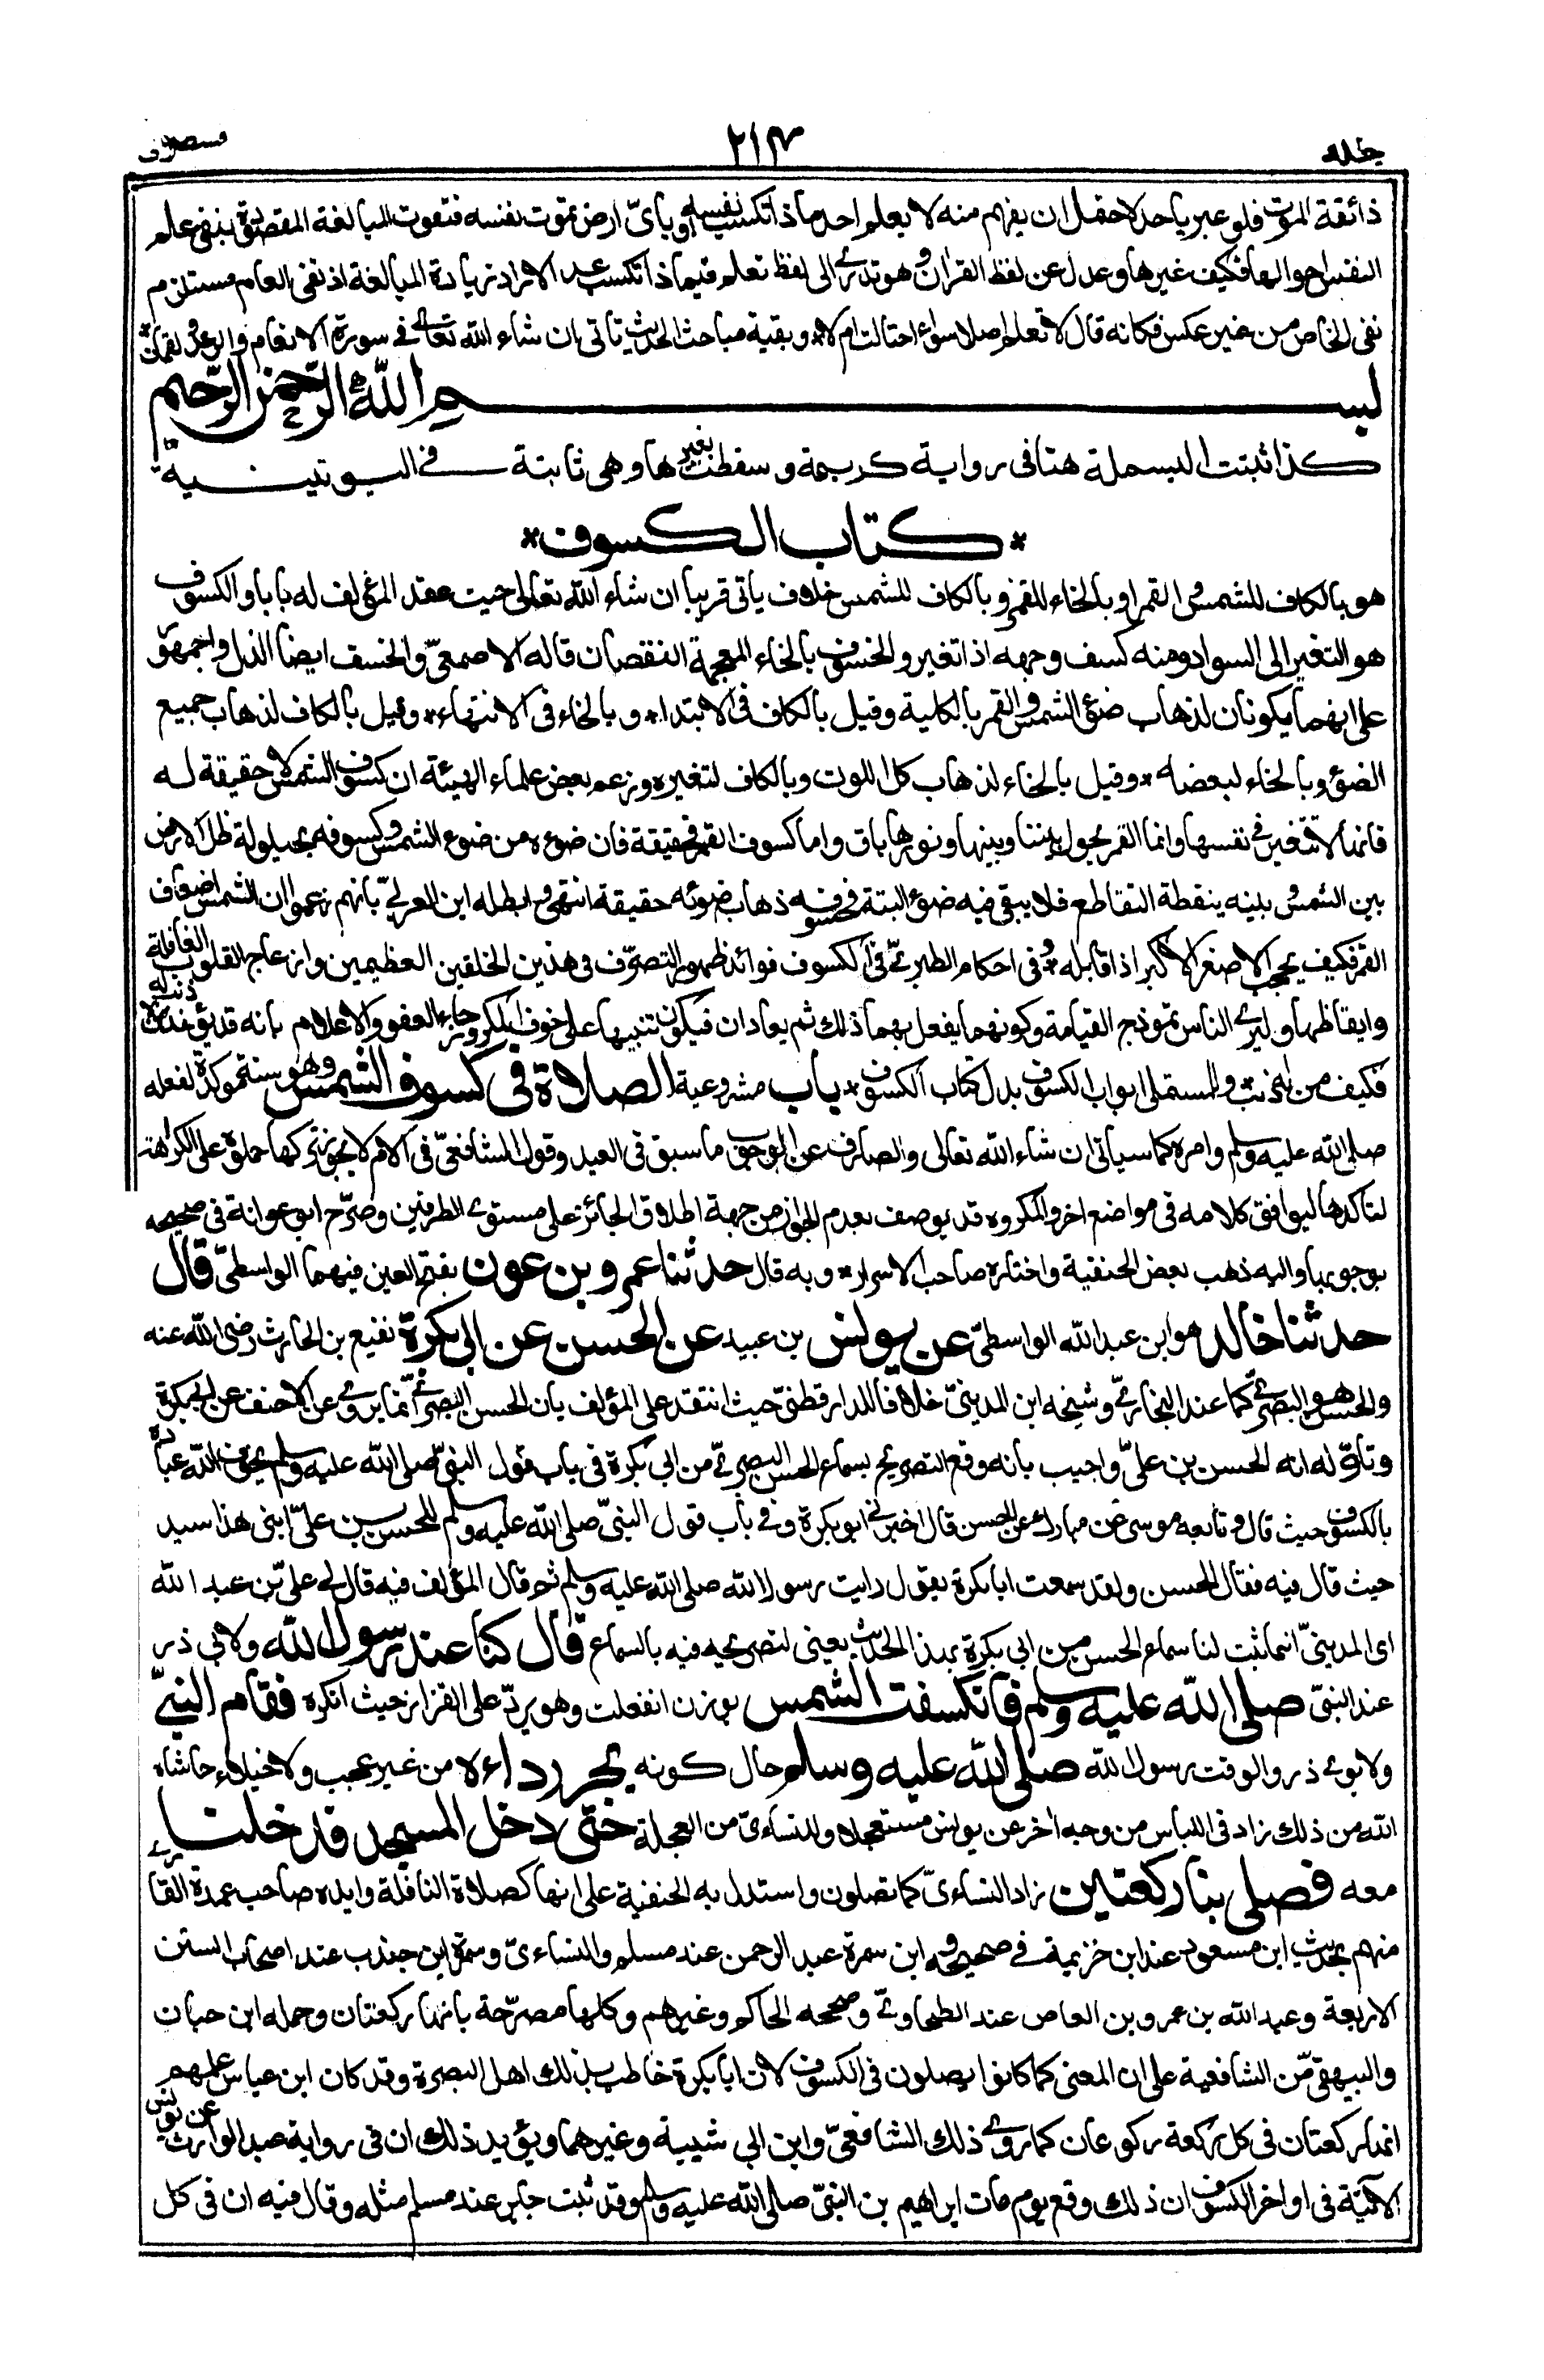 جلد ٢١٣ قسطلانی
ذائقة الموت فلو عبر باحد لاحتمل ان يفهم منه لا يعلم احد ماذا تكسب نفسه او بأىّ ارض تموت نفسه فتفوت المبالغة المقصودة بنفى علم
النفس احوالها فكيف غيرها وعدل عن لفظ القران وهو تدرى الى لفظ تعلم فيماذا تكسب غدا لارادة زيادة المبالغة اذ نفى العام مستلزم
نفى الخاص من غير عكس فكانه قال لا تعلم اصلا سواء احتالت ام لا * وبقية مباحث الحديث تاتى ان شاء الله تعالى فى سورة الانعام والرعد ولقمان *
بسم الله الرحمن الرحيم
كذا ثبتت البسملة هنا فى رواية كريمة وسقطت لغيرها وهى ثابتة فى اليونينية
* كتاب الكسوف *
هو بالكاف للشمس والقمر او بالخاء للقمر وبالكاف للشمس خلاف ياتى قريبا ان شاء الله تعالى حيث عقد المؤلف له بابا والكسوف
هو التغير الى السواد ومنه كسف وجهه اذا تغير والخسوف بالخاء المعجمة النقصان قاله الاصمعىّ والخسف ايضا الذل والجمهور
على انهما يكونان لذهاب ضوء الشمس والقمر بالكلية وقيل بالكاف فى الابتداء * وبالخاء فى الانتهاء * وقيل بالكاف لذهاب جميع
الضوء وبالخاء لبعضه * وقيل بالخاء لذهاب كل اللون وبالكاف لتغيره وزعم بعض علماء الهيئة ان كسوف الشمس لا حقيقة له
فانها لا تتغير فى نفسها وانما القمر يحول بيننا وبينها ونورها باق واما كسوف القمر فحقيقة فان ضوءه من ضوء الشمس وكسوفه بحيلولة ظل الارض
بين الشمس وبينه بنقطة التقاطع فلا يبقى فيه ضوء البتة فخسوفه ذهاب ضوئه حقيقة انتهى وابطله ابن العربىّ بانهم زعموا ان الشمس اضعاف
القمر فكيف يحجب الاصغر الاكبر اذا قابله * وفى احكام الطبرىّ فى الكسوف فوائد ظهور التصرّف فى هذين الخلقين العظيمين وازعاج القلوب الغافلة
وايقاظها وليرى الناس نموذج القيامة وكونهما يفعل بهما ذلك ثم يعادان فيكون تنبيها على خوف المكر ورجاء العفو والاعلام بانه قد يؤخذ من لا ذنب له
فكيف من له ذنب * وللمستملى ابواب الكسوف بدل كتاب الكسوف * باب مشروعية الصلاة فى كسوف الشمس وهو سنة مؤكدة لفعله
صلى الله عليه وسلم وامره كما سياتى ان شاء الله تعالى والصارف عن الوجوب ما سبق فى العيد وقول الشافعىّ فى الام لا يجوز تركها حملوه على الكراهة
لتاكدها ليوافق كلامه فى مواضع اخر والمكروه قد يوصف بعدم الجواز من جهة اطلاق الجائز على مستوى الطرفين وصرّح ابو عوانة فى صحيحه
بوجوبها واليه ذهب بعض الحنفية واختاره صاحب الاسرار * وبه قال حدثنا عمرو بن عون بفتح العين فيهما الواسطىّ قال
حدثنا خالد هو ابن عبد الله الواسطىّ عن يونس بن عبيد عن الحسن عن ابى بكرة نفيع بن الحارث رضى الله عنه
والحسن هو البصرىّ كما عند البخارىّ وشيخه ابن المدينىّ خلافا للدارقطنىّ حيث انتقد على المؤلف بان الحسن البصرىّ انما يروى عن الاحنف عن ابى بكرة
وتاوّله انه الحسن بن علىّ واجيب بانه وقع التصريح بسماع الحسن البصرىّ من ابى بكرة فى باب قول النبىّ صلى الله عليه وسلم يخوف الله عباده
بالكسوف حيث قال وتابعه موسى عن مبارك عن الحسن قال اخبرنى ابو بكرة وفى باب قول النبىّ صلى الله عليه وسلم للحسن بن علىّ ابنى هذا سيد
حيث قال فيه فقال الحسن ولقد سمعت ابا بكرة يقول رايت رسول الله صلى الله عليه وسلم ثم قال المؤلف فيه قال لى علىّ بن عبد الله
اى المدينىّ انما ثبت لنا سماع الحسن من ابى بكرة بهذا الحديث يعنى لتصريحه فيه بالسماع قال كنا عند رسول الله ولابى ذر
عند النبىّ صلى الله عليه وسلم فانكسفت الشمس بوزن انفعلت وهو يردّ على القزاز حيث انكره فقام النبىّ
ولابوى ذر والوقت رسول الله صلى الله عليه وسلم حال كونه يجر رداءه من غير عجب ولا خيلاء حاشاه
الله من ذلك زاد فى اللباس من وجه اخر عن يونس مستعجلا وللنساءىّ من العجلة حتى دخل المسجد فدخلنا
معه فصلى بنا ركعتين زاد النساءىّ كما تصلون واستدل به الحنفية على انها كصلاة النافلة وايده صاحب عمدة القارى
منهم بحديث ابن مسعود عند ابن خزيمة فى صحيحه وابن سمرة عبد الرحمن عند مسلم والنساءىّ وسمرة ابن جندب عند اصحاب السنن
الاربعة وعبد الله بن عمرو بن العاص عند الطحاوىّ وصححه الحاكم وغيرهم وكلها مصرّحة بانها ركعتان وحمله ابن حبان
والبيهقى من الشافعية على ان المعنى كما كانوا يصلون فى الكسوف لان ابا بكرة خاطب بذلك اهل البصرة وقد كان ابن عباس علمهم
انها ركعتان فى كل ركعة ركوعان كما روى ذلك الشافعىّ وابن ابى شيبة وغيرهما ويؤيد ذلك ان فى رواية عبد الوارث عن يونس
الاتية فى اواخر الكسوف ان ذلك وقع يوم مات ابراهيم بن النبىّ صلى الله عليه وسلم وقد ثبت جابر عند مسلم مثله وقال فيه ان فى كل